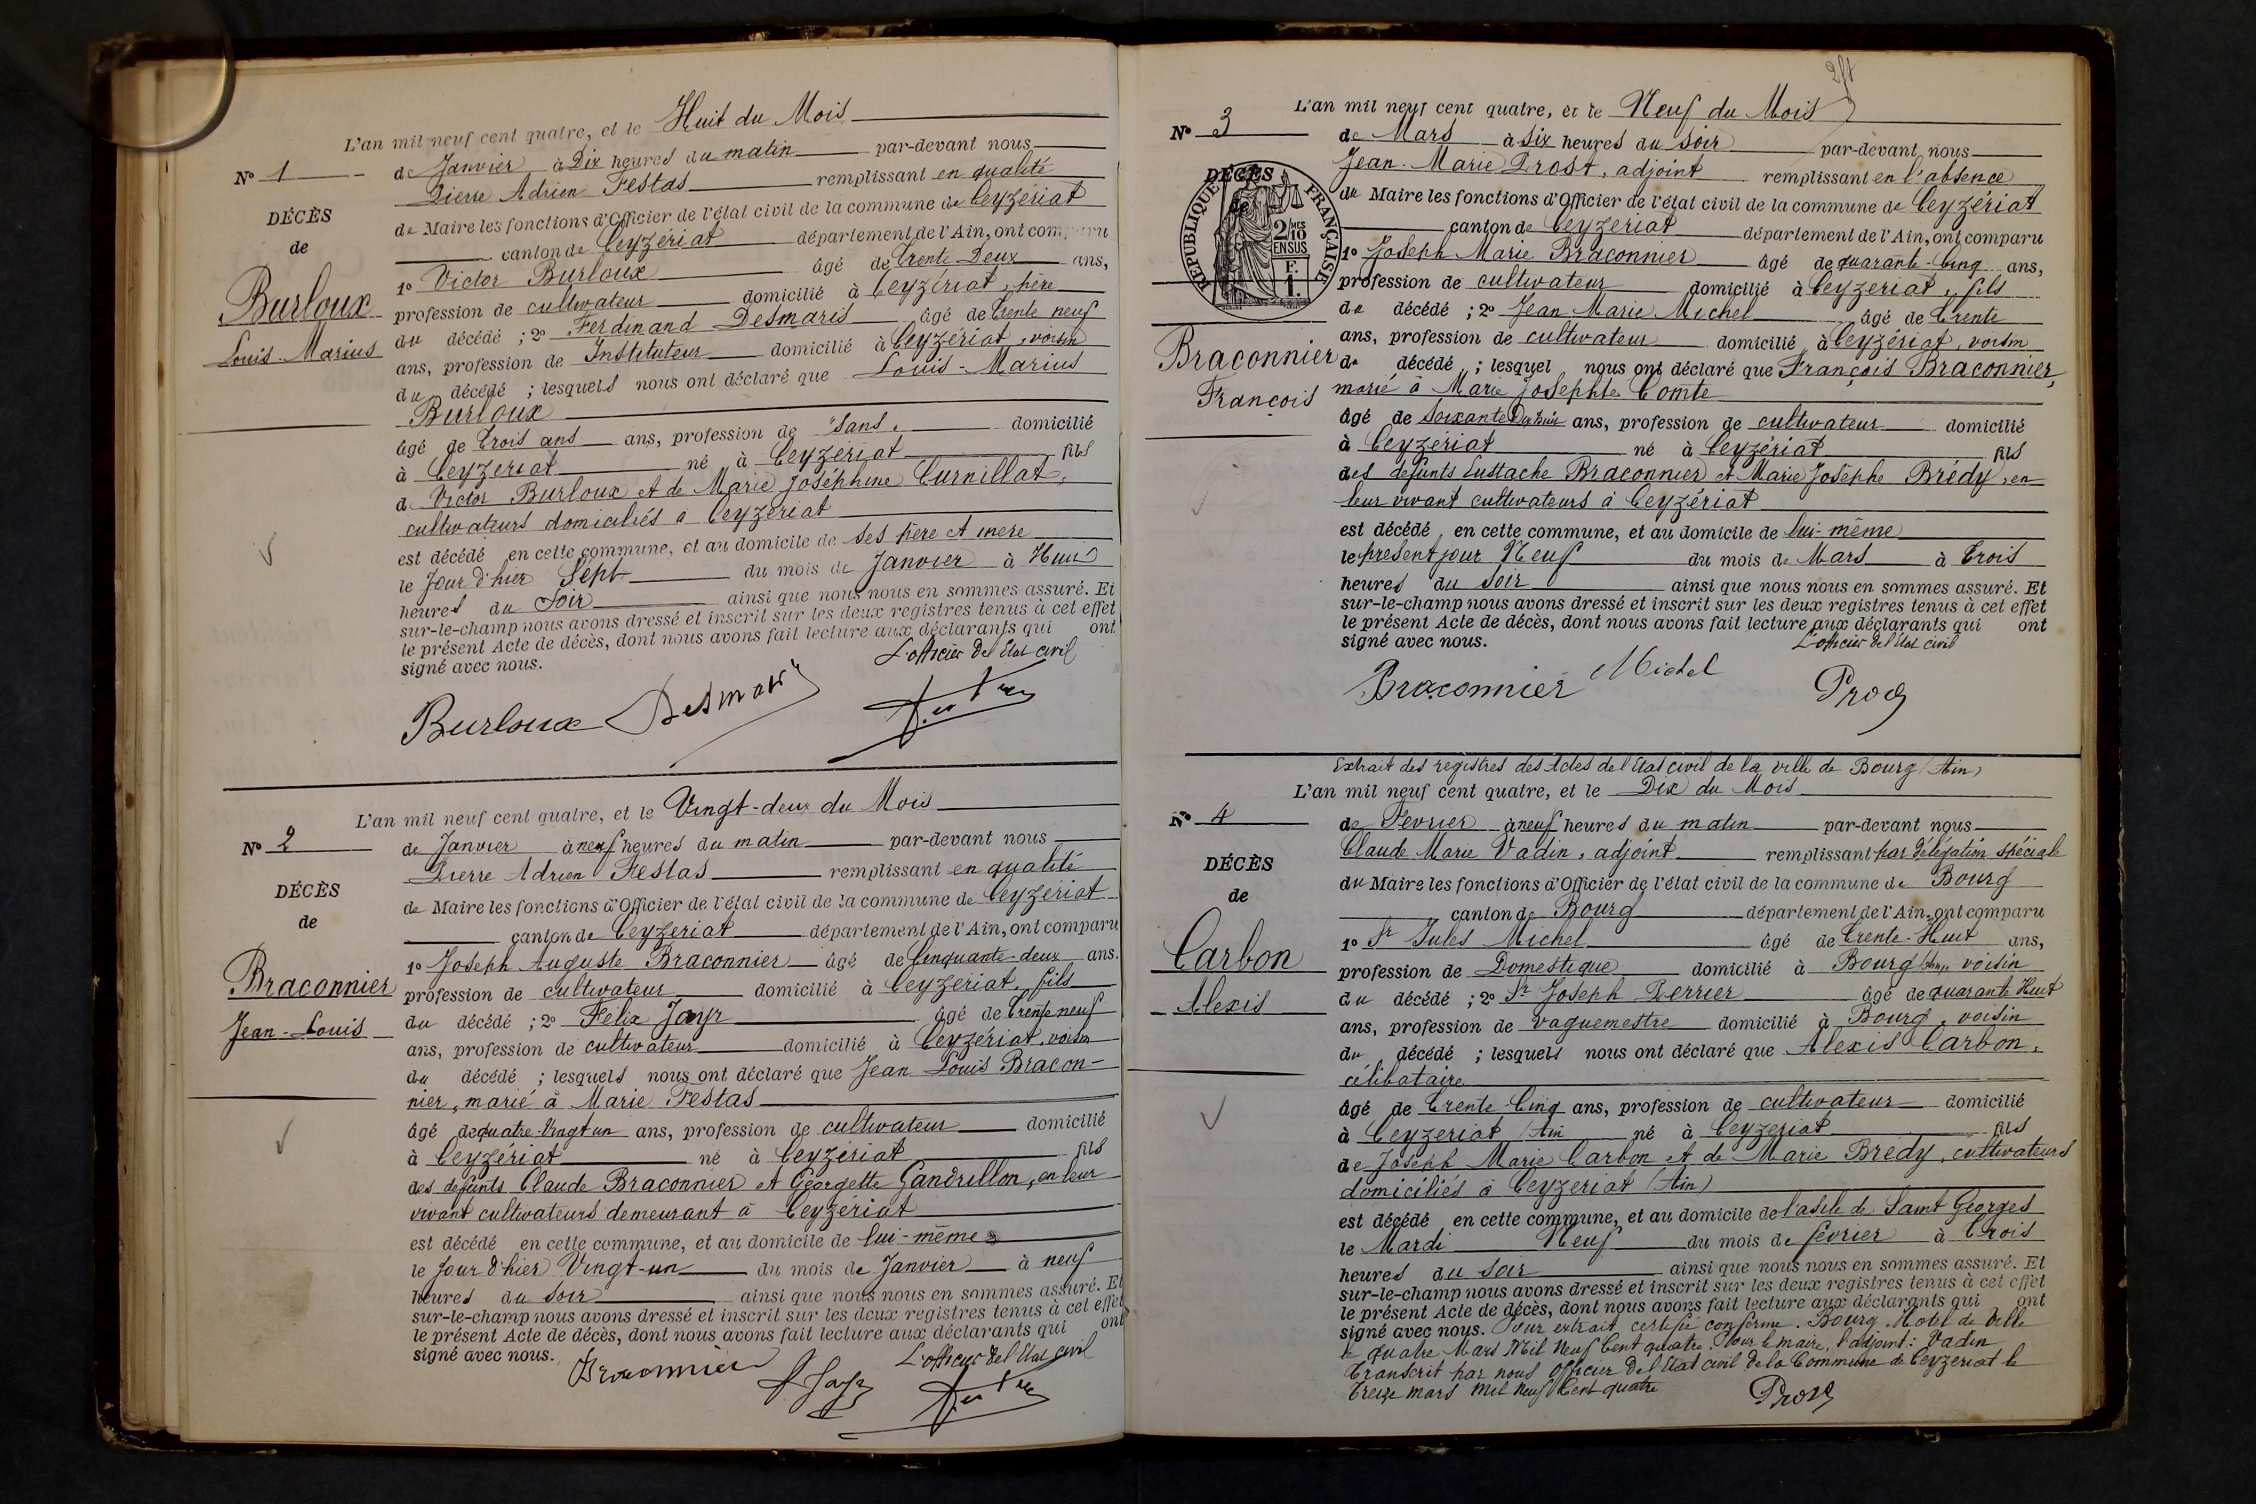 L'an mil neuf cent quatre, et le Huit du Mois
N° 1
de Janvier à Dix heures du matin par-devant nous
Pierre Adrien Festas remplissant en qualité
DÉCÈS
de Maire les fonctions d'Officier de l'état civil de la commune de Ceyzériat
de
canton de Ceyzériat département de l'Ain, ont comparu
1° Victor Burloux âgé de Trente Deux ans,
Burloux
profession de cultivateur domicilié à Ceyzériat, père
du décédé ; 2° Ferdinand Desmaris âgé de Trente neuf
Louis-Marius
ans, profession de Instituteur domicilié à Ceyzériat, voisin
du décédé ; lesquels nous ont déclaré que Louis-Marius
Burloux
âgé de Trois ans ans, profession de "sans" domicilié
à Ceyzériat né à Ceyzériat fils
de Victor Burloux et de Marie Joséphine Curnillat,
cultivateurs domiciliés à Ceyzériat
est décédé en cette commune, et au domicile de ses père et mère
le Jour d'hier Sept du mois de Janvier à Huit
heures du Soir ainsi que nous nous en sommes assuré. Et
sur-le-champ nous avons dressé et inscrit sur les deux registres tenus à cet effet
le présent Acte de décès, dont nous avons fait lecture aux déclarants qui ont
signé avec nous. L'officier del'Etat civil
Burloux Desmaris
L'an mil neuf cent quatre, et le Vingt-deux du Mois
N° 2
de Janvier à neuf heures du matin par-devant nous
Pierre Adrien Festas remplissant en qualité
DÉCÈS
de Maire les fonctions d'Officier de l'état civil de la commune de Ceyzériat
de
canton de Ceyzériat département de l'Ain, ont comparu
1° Joseph Auguste Braconnier âgé de Cinquante-deux ans.
Braconnier
profession de cultivateur domicilié à Ceyzériat, fils
Jean-Louis
du décédé ; 2° Félix Jayr âgé de Trente neuf
ans, profession de cultivateur domicilié à Ceyzériat, voisin
du décédé ; lesquels nous ont déclaré que Jean Louis Bracon-
nier, marié à Marie Festas
âgé de quatre-Vingt un ans, profession de cultivateur domicilié
à Ceyzériat né à Ceyzériat fils
des défunts Claude Braconnier et Georgette Gandrillon, en leur
vivant cultivateurs demeurant à Ceyzériat
est décédé en cette commune, et au domicile de lui-même
le Jour d'hier Vingt-un du mois de Janvier à neuf
heures du soir ainsi que nous nous en sommes assuré. Et
sur-le-champ nous avons dressé et inscrit sur les deux registres tenus à cet effet
le présent Acte de décès, dont nous avons fait lecture aux déclarants qui ont
signé avec nous. L'officier del'Etat civil
Braconnier F Jayr
L'an mil neuf cent quatre, et le Neuf du Mois
N° 3
de Mars à six heures du soir par-devant nous
Jean-Marie Prost, adjoint remplissant en l'absence
DÉCÈS
du Maire les fonctions d'Officier de l'état civil de la commune de Ceyzériat
de
RÉPUBLIQUE FRANÇAISE
2/10 MES
EN SUS
F.
1.
canton de Ceyzériat département de l'Ain, ont comparu
1° Joseph Marie Braconnier âgé de quarante-Cinq ans,
profession de cultivateur domicilié à Ceyzériat, fils
du décédé ; 2° Jean Marie Michel âgé de Trente
ans, profession de cultivateur domicilié à Ceyzériat, voisin
Braconnier
du décédé ; lesquel nous ont déclaré que François Braconnier,
François
marié à Marie Josephte Comte
âgé de Soixante Dix huit ans, profession de cultivateur domicilié
à Ceyzériat né à Ceyzériat fils
des défunts Eustache Braconnier et Marie Josèphe Brédy, en
leur vivant cultivateurs à Ceyzériat
est décédé en cette commune, et au domicile de lui-même
le présent jour Neuf du mois de Mars à Trois
heures du soir ainsi que nous nous en sommes assuré. Et
sur-le-champ nous avons dressé et inscrit sur les deux registres tenus à cet effet
le présent Acte de décès, dont nous avons fait lecture aux déclarants qui ont
signé avec nous. L'officier del'Etat civil
Braconnier Michel Prost
Extrait des registres des Actes del'Etat civil de la ville de Bourg (Ain)
L'an mil neuf cent quatre, et le Dix du Mois
N° 4
de Février à neuf heures du matin par-devant nous
Claude Marie Vadin, adjoint remplissant par délégation spéciale
DÉCÈS
du Maire les fonctions d'Officier de l'état civil de la commune de Bourg
de
canton de Bourg département de l'Ain, ont comparu
1° Sr Jules Michel âgé de Trente-Huit ans,
Carbon
profession de Domestique domicilié à Bourg voisin
Alexis
du décédé ; 2° Sr Joseph Perrier âgé de quarante Huit
ans, profession de vaguemestre domicilié à Bourg, voisin
du décédé ; lesquels nous ont déclaré que Alexis Carbon,
célibataire
âgé de Trente Cinq ans, profession de cultivateur domicilié
à Ceyzériat (Ain né à Ceyzériat fils
de Joseph Marie Carbon et de Marie Brédy, cultivateurs
domiciliés à Ceyzériat (Ain)
est décédé en cette commune, et au domicile de l'asile de Saint Georges
le Mardi Neuf du mois de février à Trois
heures du soir ainsi que nous nous en sommes assuré. Et
sur-le-champ nous avons dressé et inscrit sur les deux registres tenus à cet effet
le présent Acte de décès, dont nous avons fait lecture aux déclarants qui ont
signé avec nous. Pour extrait certifié conforme. Bourg Hôtel de Ville
le quatre Mars Mil Neuf Cent quatre. Pour le maire, l'adjoint: Vadin
Transcrit par nous officier del'Etat civil de la Commune de Ceyzeriat le
Treize mars mil neuf Cent quatre
Prost